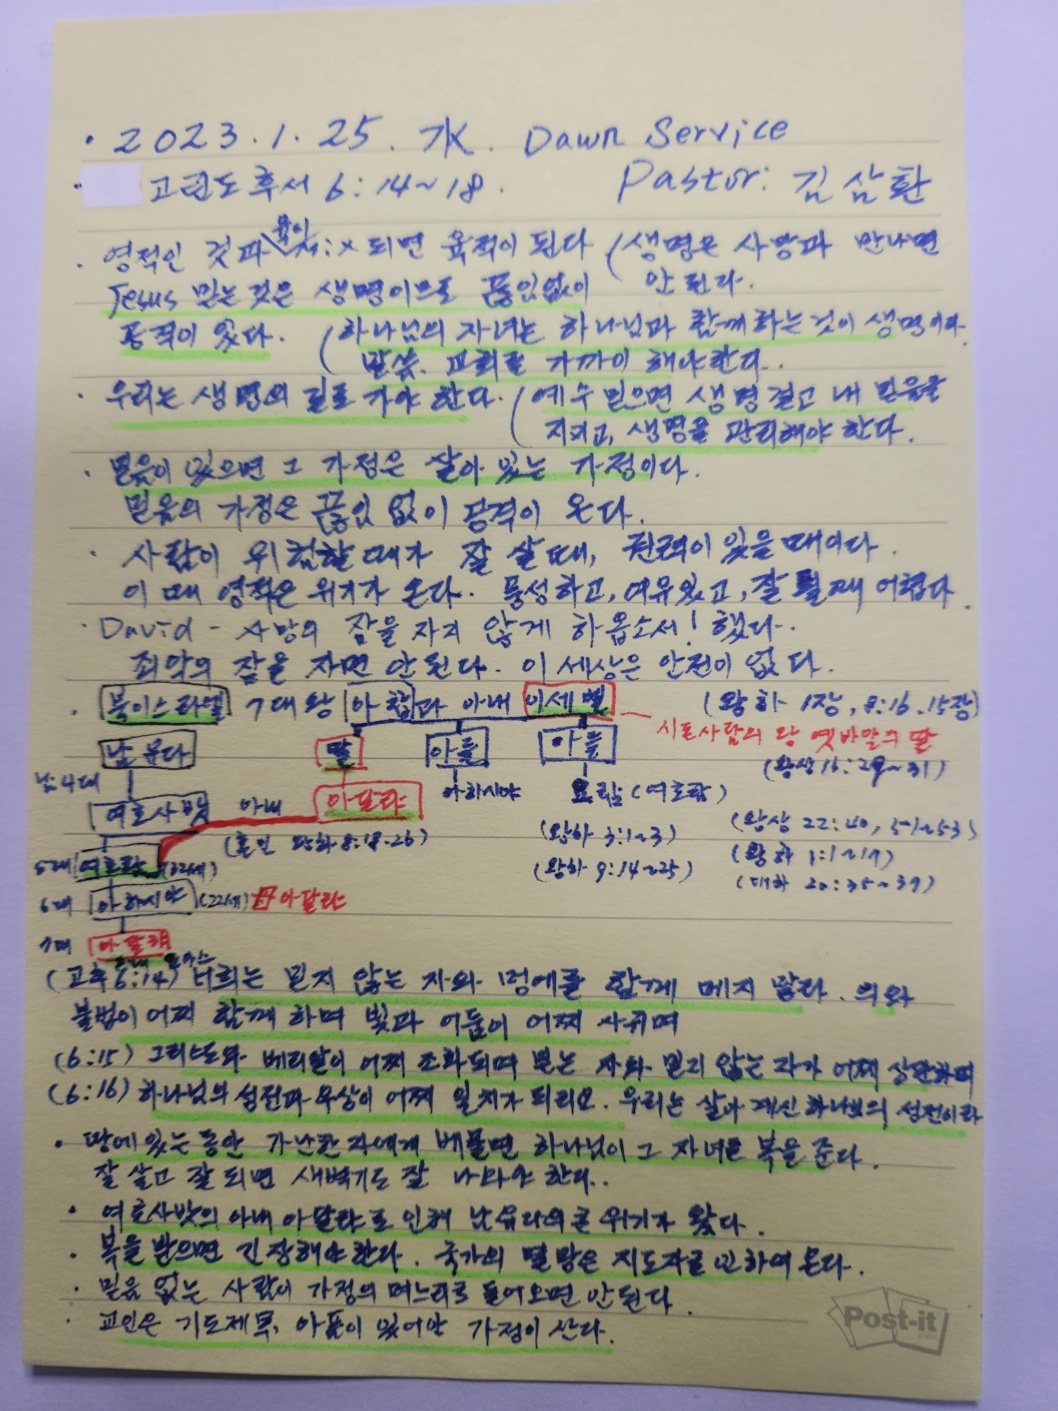 · 2023. 1. 25. 水. Dawn Service
· 고린도후서 6:14~18. Pastor: 김삼환
· 영적인 것과 육이 되면 육적이 된다 (생명은 사망과 만나면
Jesus 믿는 것은 생명이므로 끊임없이 안 된다.
공격이 있다. (하나님의 자녀는 하나님과 함께하는 것이 생명이다.
말씀, 교회를 가까이 해야한다..
· 우리는 생명의 길로 가야 한다. (예수 믿으면 생명 걸고 내 믿음을
지키고, 생명을 관리해야 한다.
· 믿음이 있으면 그 가정은 살아 있는 가정이다.
믿음의 가정은 끊임 없이 공격이 온다.
· 사람이 위험할 때가 잘 살 때, 권력이 있을 때이다.
이 때 영적은 위기가 온다. 풍성하고, 여유있고, 잘 될때 어렵다.
· David - 사망의 잠을 자지 않게 하옵소서! 했다.
죄악의 잠을 자면 안 된다. 이 세상은 안전이 없다.
· 북이스라엘 7대 왕 아합과 아내 이세벨 (왕하 1장, 8:16. 15장)
시돈사람의 왕 엣바알의 딸
남유다 딸 아들 아들 (왕상 16:29~31)
남: 4대 여호사밧 아내 아달랴 아하시야 요람 (여호람)
(혼인 왕하 8:18.26) (왕하 3:1~3) (왕상 22:40, 51~53)
5대 여호람 (32세) (왕하 9:14~25) (왕하 1:1~17)
6대 아하시야 (22세) 母아달랴 (대하 20:35~37)
7대 아달랴
요아스
(고후6:14) 너희는 믿지 않는 자와 멍에를 함께 메지 말라. 의와
불법이 어찌 함께 하며 빛과 어둠이 어찌 사귀며
(6:15) 그리스도와 벨리알이 어찌 조화되며 믿는 자와 믿지 않는 자가 어찌 상관하며
(6:16) 하나님의 성전과 우상이 어찌 일치가 되리요. 우리는 살아 계신 하나님의 성전이라
· 땅에 있는 동안 가난한 자에게 베풀면 하나님이 그 자녀를 복을 준다.
잘 살고 잘 되면 새벽기도 잘 나와야 한다..
· 여호사밧의 아내 아달랴로 인해 남유다의 큰 위기가 왔다.
· 복을 받으면 긴장해야 한다. 국가의 멸망은 지도자로 인하여 온다.
· 믿음 없는 사람이 가정의 며느리로 들어오면 안된다.
· 교인은 기도제목, 아픔이 있어야 가정이 산다.
Post-it